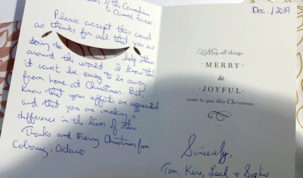 Dec. /2019
of the Canadian
& Claude Force.
Please accept this card
as thanks for all that you are
doing to help others
around the world. I know that
it can't be easy to be away
from home at Christmas. But
know that your efforts are appreciated
and that you are making a
difference in the lives of others.
Thanks and Merry Christmas from
Cobourg, Ontario
May all things
MERRY
&
JOYFUL
come to you this Christmas.
Sincerely,
Tom, Kara, & Sophie